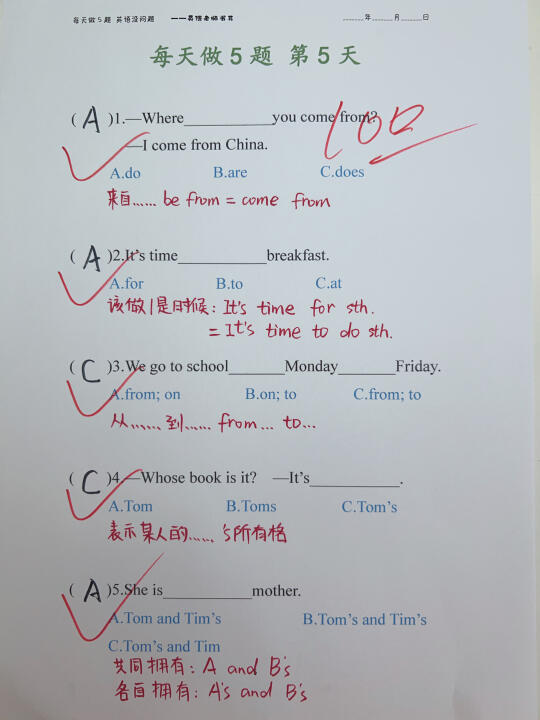 每天做5题 英语没问题
年 月 日
每天做5题 第5天
(A)1.—Where__________you come from?
100
—I come from China.
A.do B.are C.does
来自…… be from = come from
(A)2.It's time__________breakfast.
A.for B.to C.at
该做……是时候: It's time for sth.
= It's time to do sth.
(C)3.We go to school______Monday______Friday.
A.from; on B.on; to C.from; to
从……到…… from… to…
(C)4.—Whose book is it? —It's__________.
A.Tom B.Toms C.Tom's
表示某人的…… 's所有格
(A)5.She is__________mother.
A.Tom and Tim's B.Tom's and Tim's
C.Tom's and Tim
共同拥有: A and B's
各自拥有: A's and B's